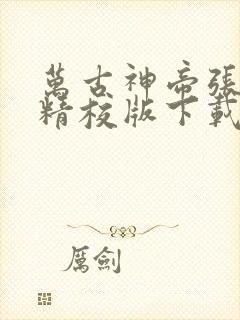 萬古神帝張
精校版下載
厲劍